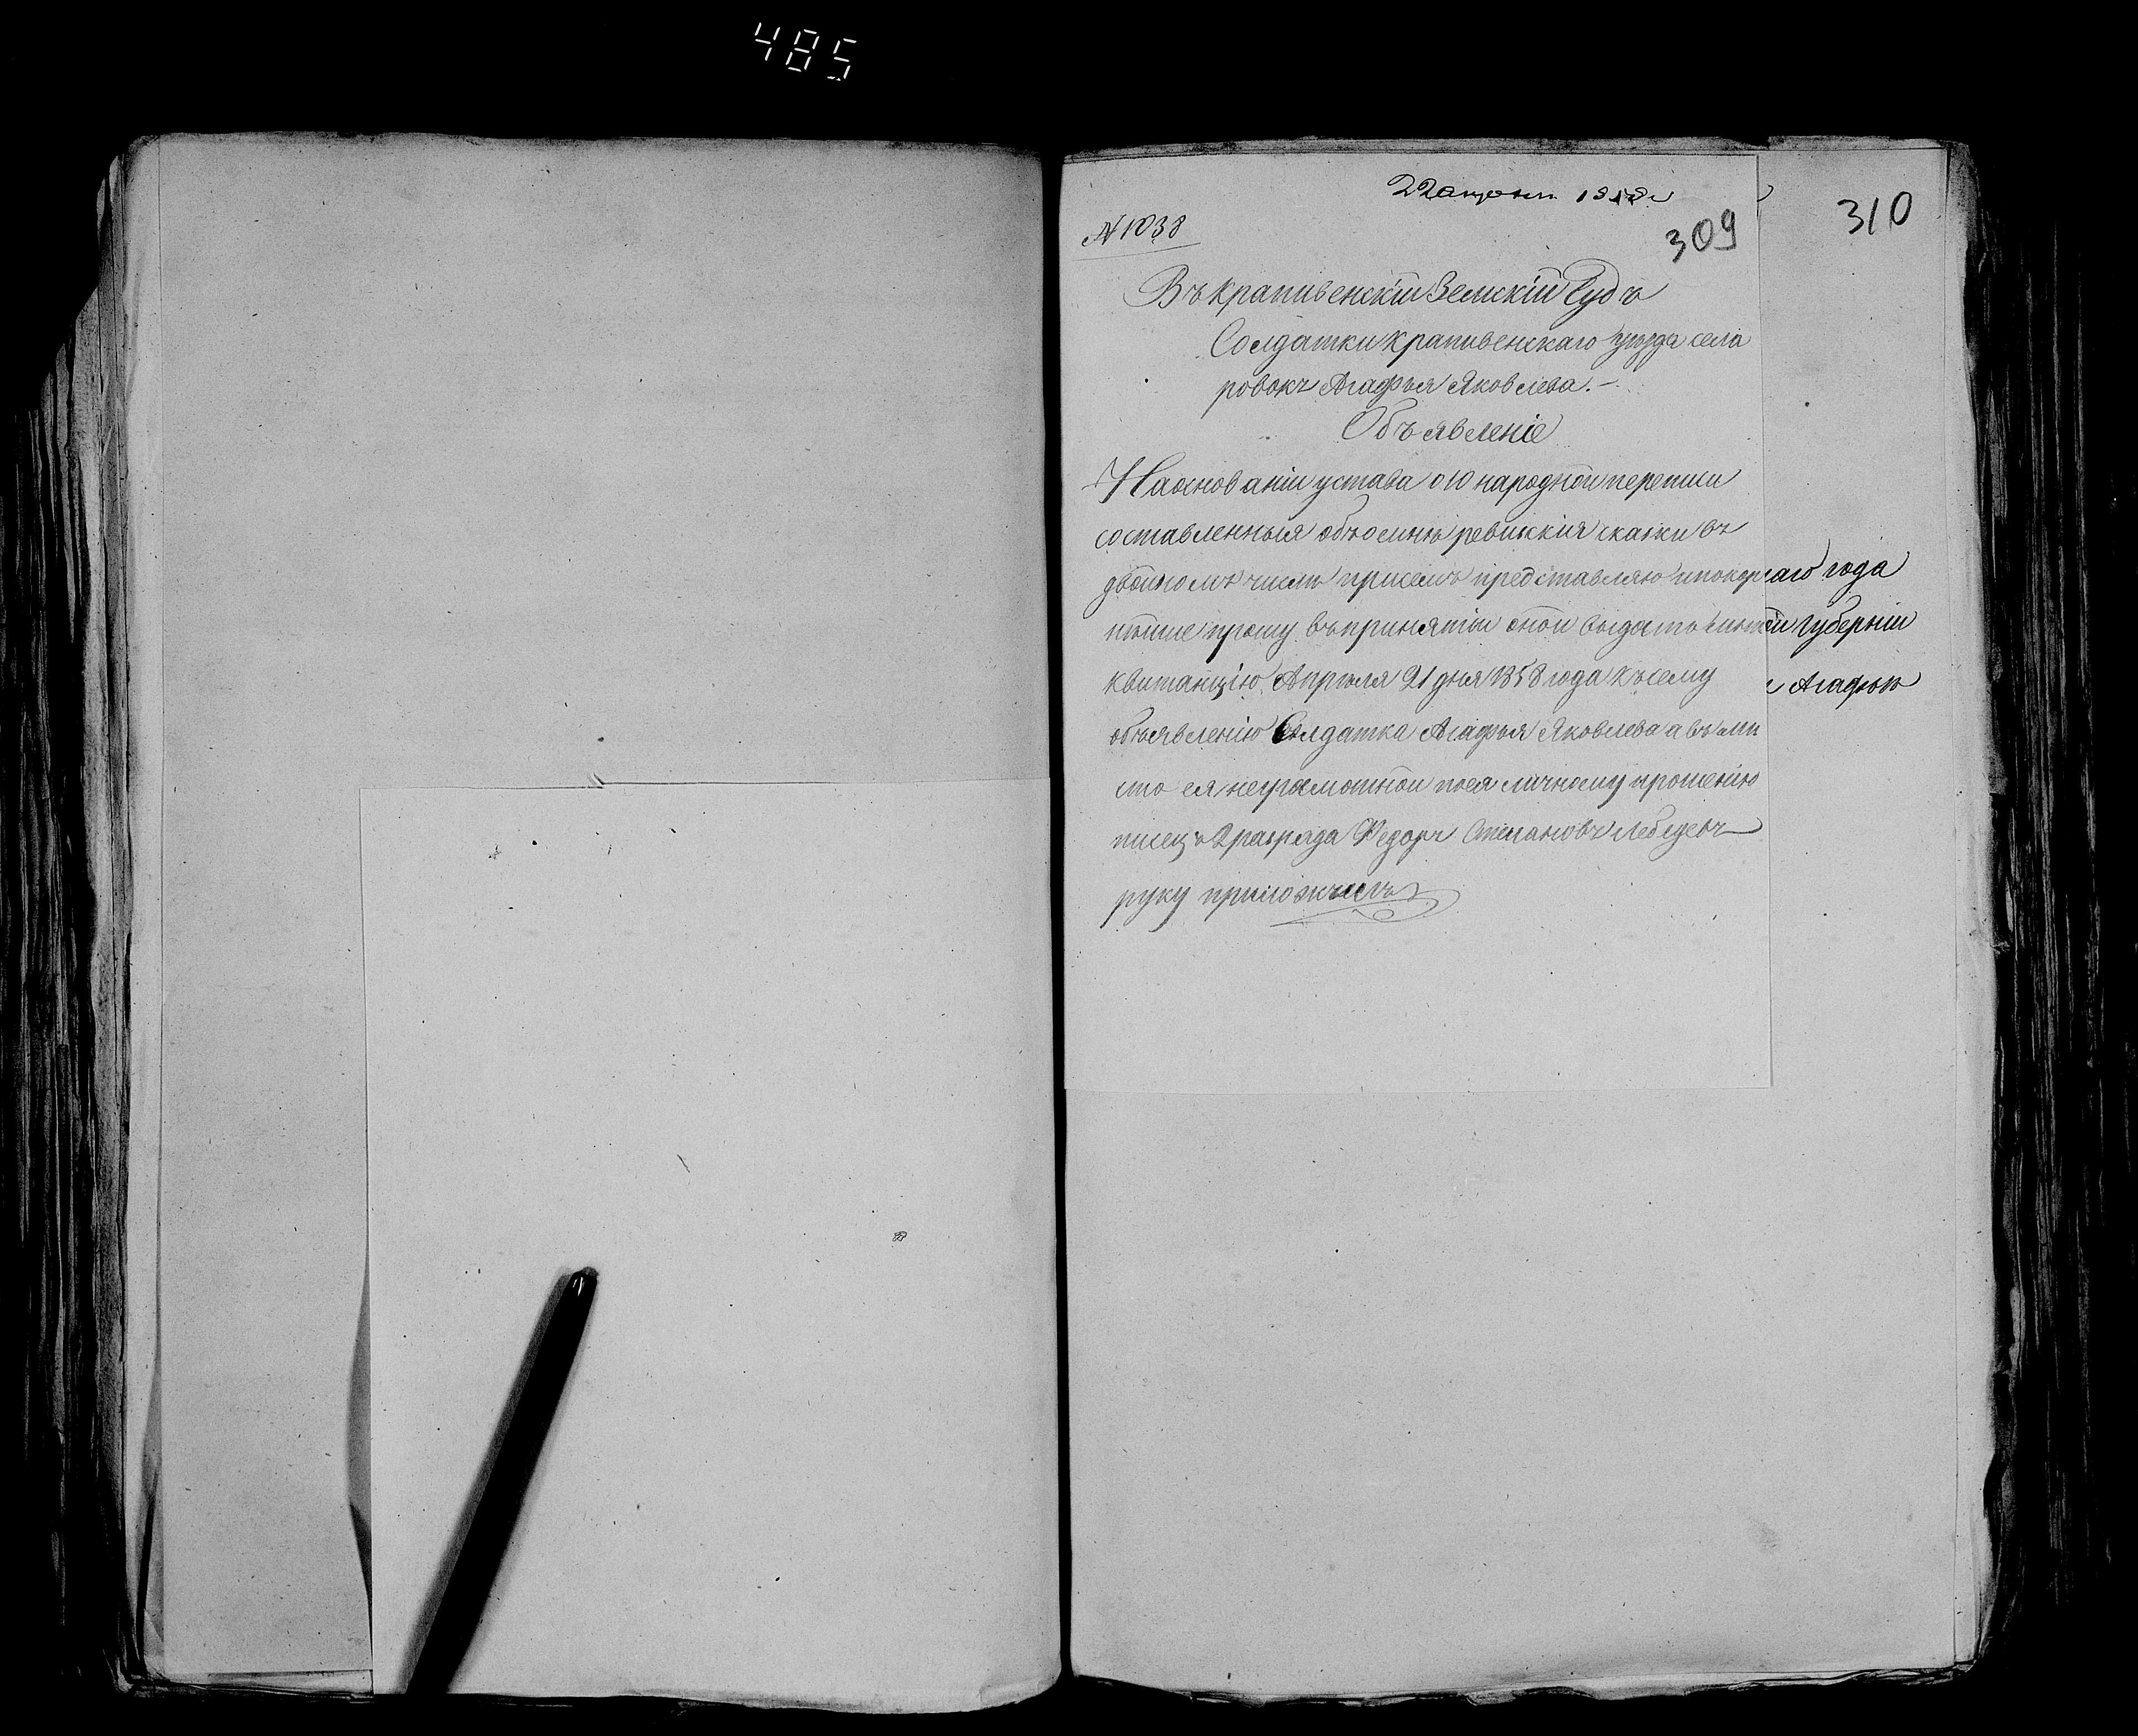 485
22 апреля 1858
№ 1038
309
310
Въ крапивенскій Земскій Судъ
Солдатки крапивенскаго уезда села
ровокъ Агафья Яковлева. –
Объявленіе
На основаніи устава о 10 народной переписи
составленныя обо мнѣ ревижкія скаски въ
двойномъ числѣ присемъ представляю и покор
нѣйше прошу въ принятіи оной выдать мнѣ
квитанцію Апрѣля 21 дня 1858 года Къ сему
объявленію Солдатка Агафья Яковлева а въ мѣ
сто ея неграмотной по ея личному прошению
писецъ 2 разряда Федоръ Степановъ Лебедевъ
руку приложилъ
аго года
губерніи
Агафьи